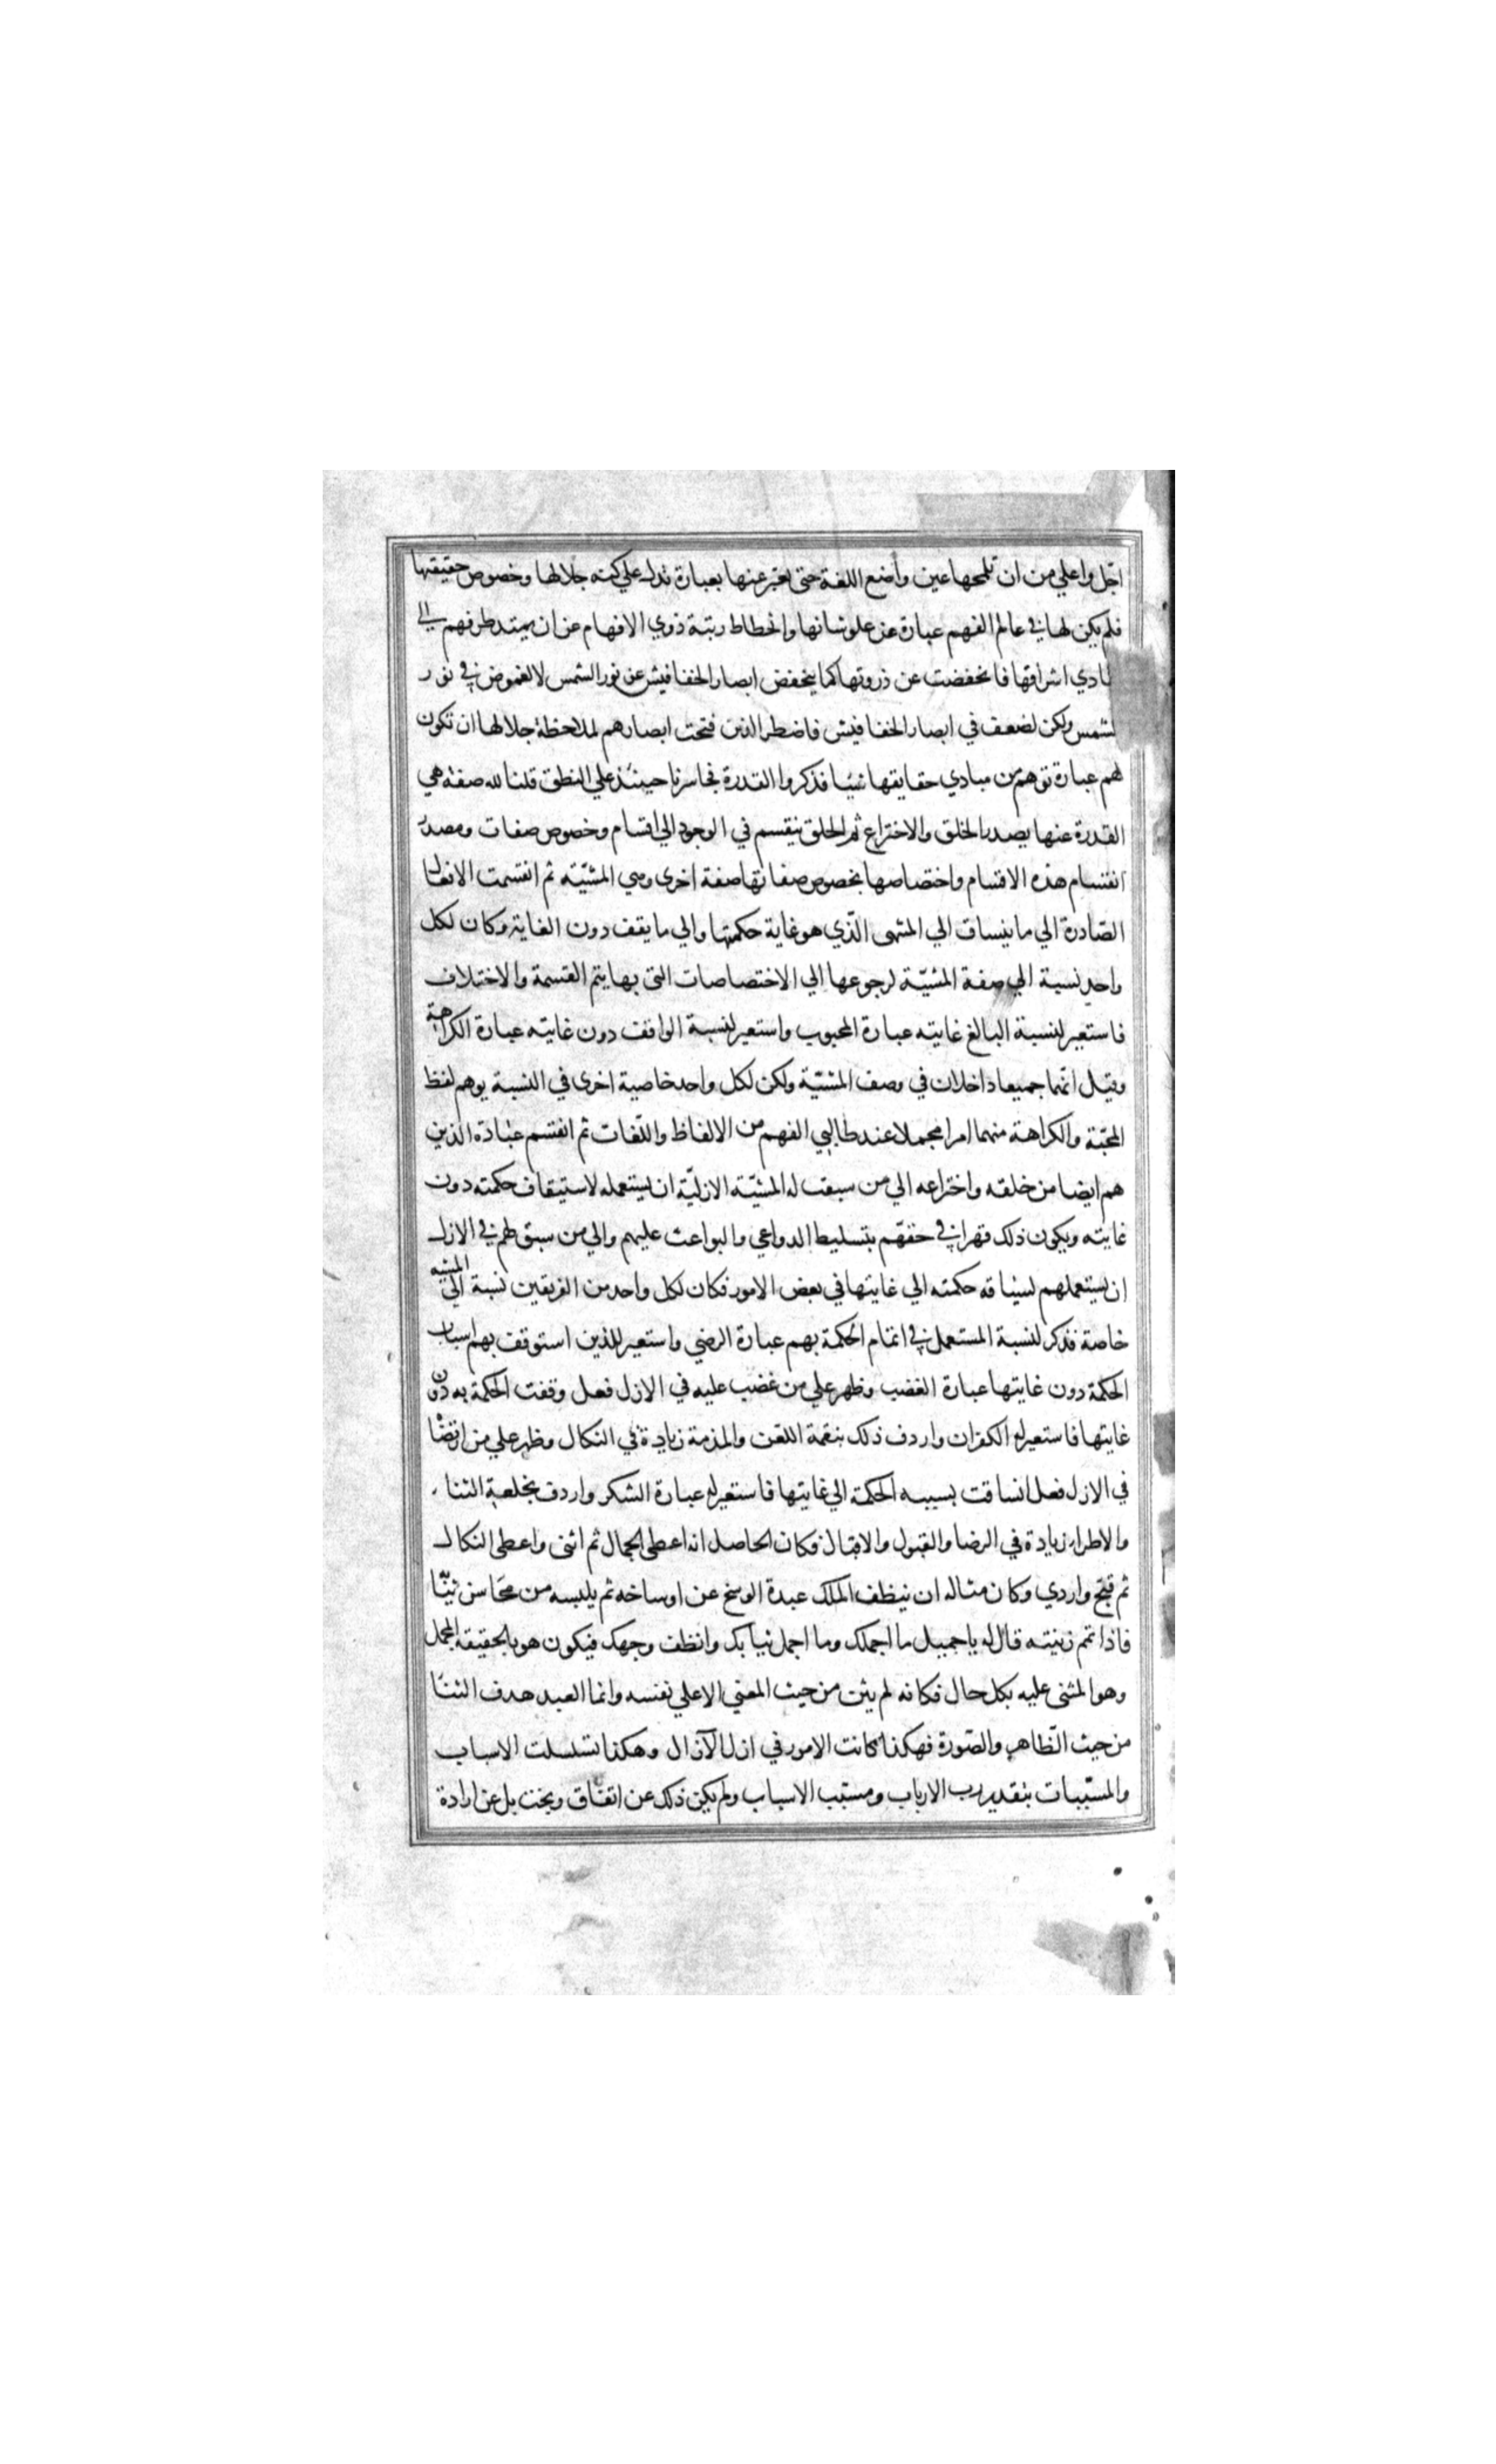 اجّل واعلي من ان تلمحها عين واضع اللغة حتى يعبّر عنها بعبارة تدل علي كنه جلالها وخصوص حقيقتها
فلم يكن لها في عالم الفهم عبارة عن علو شانها وانحطاط رتبة ذوي الافهام عن ان يمتد طرفهم الي
ادي اشراقها فانخفضت عن ذروتها كما ينخفض ابصار الخفافيش عن نور الشمس لا لغموض في نور
لشمس ولكن لضعف في ابصار الخفافيش فاضطر الذين فتحت ابصارهم لملاحظة جلالها ان تكون
لهم عبارة توهم من مبادي حقايقها شيئا فذكروا القدرة فتجاسرنا حينئذ علي النطق قلنا لله صفة هي
القدرة عنها يصدر الخلق والاختراع ثم الخلق ينقسم في الوجود الي اقسام وخصوص صفات ومصدر
انقسام هذه الاقسام واختصاصها بخصوص صفاتها صفة اخرى وهي المشيّة ثم انقسمت الافعال
الصّادرة الي ما ينساق الي المنتهى الّذي هو غاية حكمتها والي ما يقف دون الغاية وكان لكل
واحد نسبة الي صفة المشيّة لرجوعها الي الاختصاصات التي بها يتم القسمة والاختلاف
فاستعير لنسبة البالغ غايته عبارة المحبوب واستعير لنسبة الواقف دون غايته عبارة الكراهة
وقيل انّهما جميعا داخلان في وصف المشيّة ولكن لكل واحد خاصية اخرى في النسبة يوهم لفظ
المحبّة والكراهة منهما امرا مجملا عند طالبي الفهم من الالفاظ واللّغات ثم انقسم عباده الذين
هم ايضا من خلقه واختراعه الي من سبقت له المشيّة الازليّة ان يستعمله لاستيقاف حكمته دون
غايته ويكون ذلك قهرا في حقهّم بتسليط الدواعي والبواعث عليهم والي من سبق لهم في الازل
ان يستعملهم لسياقه حكمته الي غايتها في بعض الامور فكان لكل واحد من الفريقين نسبة الي المشيه
خاصة فذكر لنسبة المستعمل في اتمام الحكمة بهم عبارة الرضي واستعير للذين استوقفت بهم اسباب
الحكمة دون غايتها عبارة الغضب وظهر علي من غضب عليه في الازل فعل وقفت الحكمة به دون
غايتها فاستعير له الكفران واردف ذلك بنقمة اللعن والمذمة زيادة في النكال وظهر علي من ارتضاه
في الازل فعل انساقت بسببه الحكمة الي غايتها فاستعير له عبارة الشكر واردف بخلعة الثناء
والاطراء زيادة في الرضا والقبول والاقبال فكان الحاصل انه اعطى الجمال ثم اثنى واعطى النكال
ثم قبّح واردي وكان مثاله ان ينظف الملك عبدة الوسخ عن اوساخه ثم يلبسه من محاسن ثيابه
فاذا تم زينته قال له يا جميل ما اجملك وما اجمل ثيابك وانظف وجهك فيكون هو بالحقيقه المجمل
وهو المثنى عليه بكل حال فكانه لم يثن من حيث المعني الا علي نفسه وانما العبد هدف الثنا
من حيث الظّاهر والصّورة فهكذا كانت الامور في ازل الآزال وهكذا تسلسلت الاسباب
والمسبّبات بتقدير رب الارباب ومسبّب الاسباب ولم يكن ذلك عن اتفاق وبخت بل عن ارادة